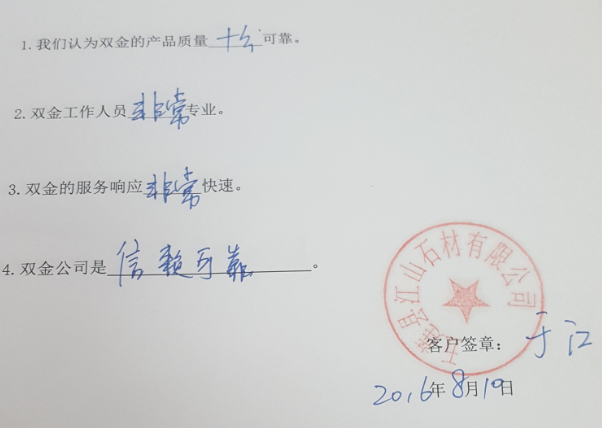 1.我们认为双金的产品质量十分可靠。
2.双金工作人员非常专业。
3.双金的服务响应非常快速。
4.双金公司是信赖可靠。
五莲县江山石材有限公司
客户签章：于江
2016年8月10日